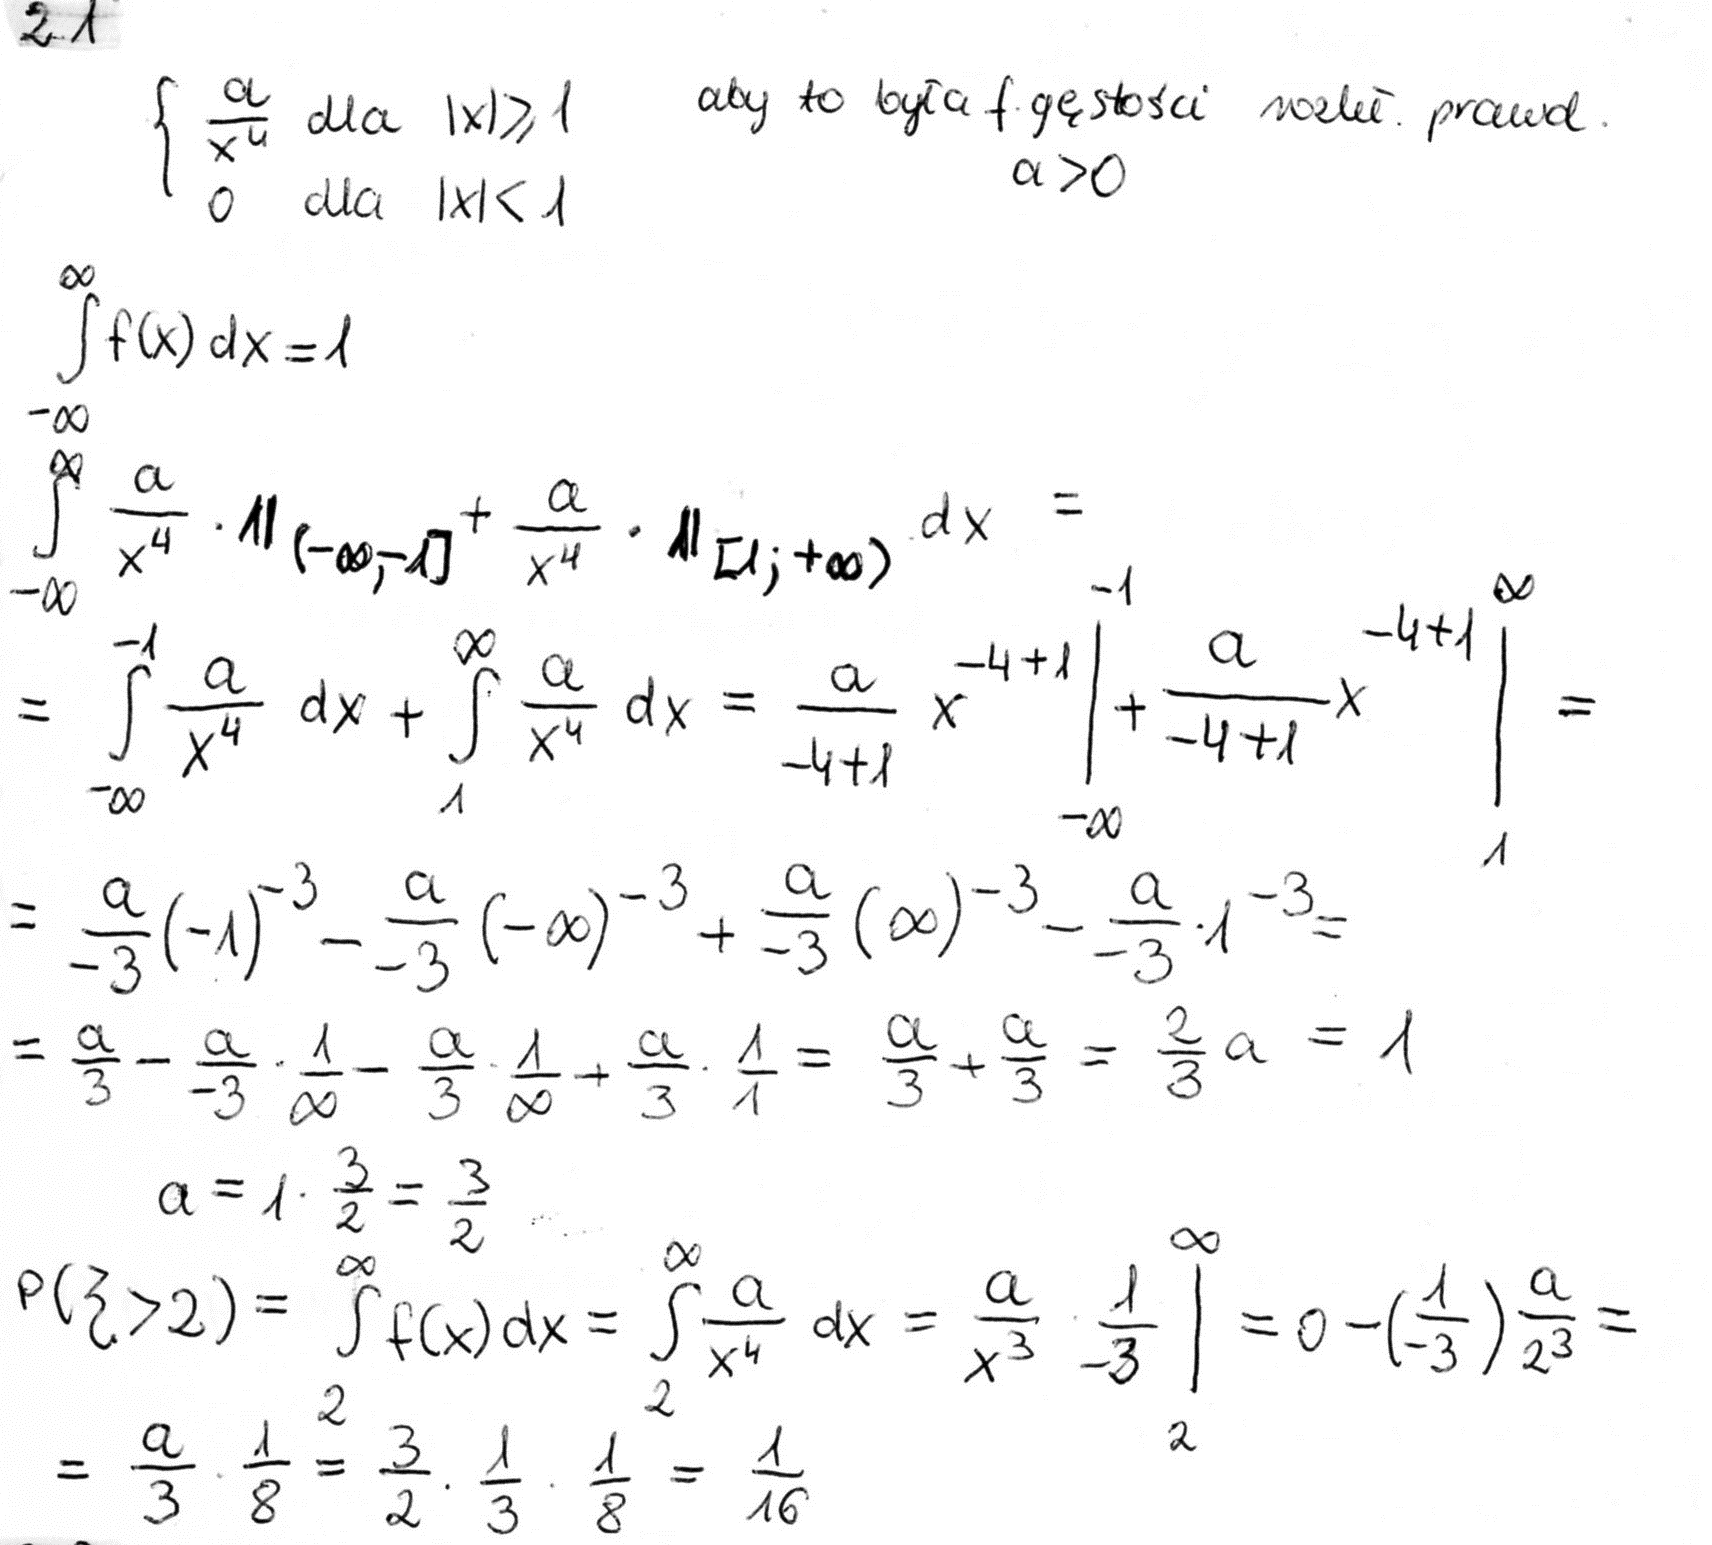 21
{ a/x⁴ dla |x|⩾1 aby to była f. gęstości rozkł. prawd.
0 dla |x|<1 a>0
∞∫-∞ f(x) dx = 1
∞∫-∞ a/x⁴ · 𝟙(-∞,-1] + a/x⁴ · 𝟙[1;+∞) dx =
= -1∫-∞ a/x⁴ dx + ∞∫1 a/x⁴ dx = a/-4+1 x^-4+1 |-1 -∞ + a/-4+1 x^-4+1 |∞ 1 =
= a/-3 (-1)^-3 - a/-3 (-∞)^-3 + a/-3 (∞)^-3 - a/-3 · 1^-3 =
= a/3 - a/-3 · 1/∞ - a/3 · 1/∞ + a/3 · 1/1 = a/3 + a/3 = 2/3 a = 1
a = 1 · 3/2 = 3/2
P(ξ>2) = ∞∫2 f(x) dx = ∞∫2 a/x⁴ dx = a/x³ · 1/-3 |∞ 2 = 0 - (1/-3) a/2³ =
= a/3 · 1/8 = 3/2 · 1/3 · 1/8 = 1/16